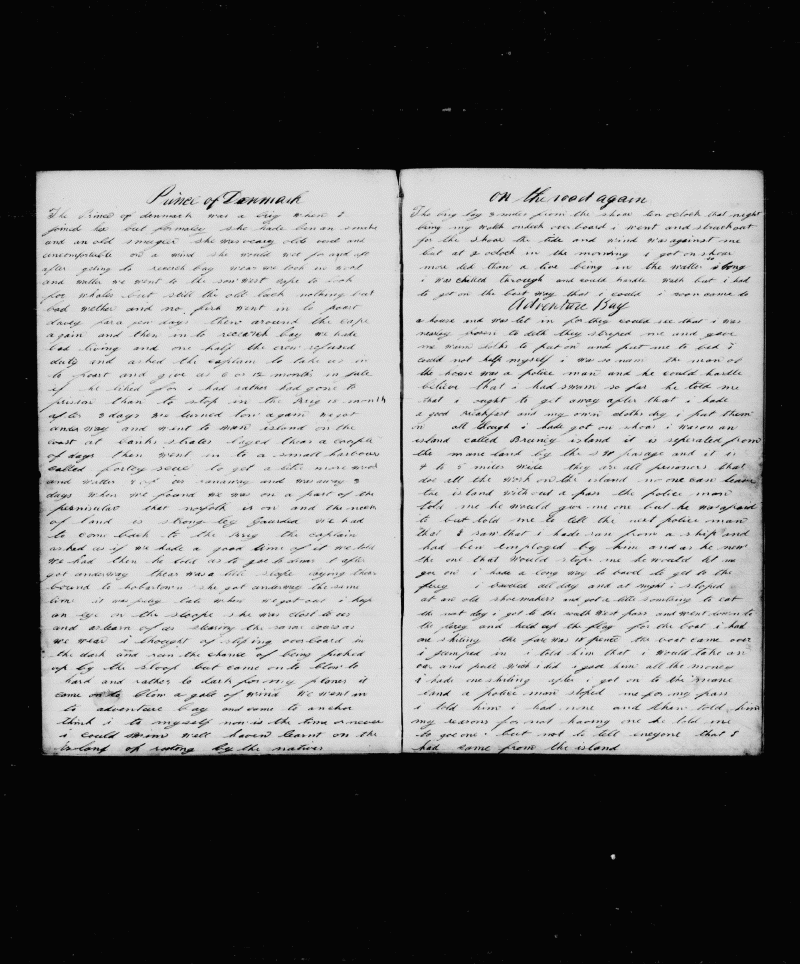 Prince of Denmark
The Prince of denmark was a brig when I
joined her but formaly she hade bin an
and an old she was very old and
uncomfortable on a wind she would not go
after going to bay wear we took in wood
and watter we went to the sou west cape to look
for whales but still the old luck nothing but
bad wether and no fish went in to poart
davey days then around the cape
again and then in to bay we hade
bad living and one half the crew refused
duty and asked the captain to take us in
to poart and give us 6 or 12 months in jale
if he liked for i had rather had gone to
prison than to stop in the brig 12 month
after 3 days we turned tow again we got
under way and went to island on the
coast at layed thear a cooper
of days then went in to a small harbour
called to get a litle more wood
and watter of us runaway and was away 3
days when we found we was on a part of the
peninsular that norfolk is on and the neck
of land is strong ley gaurded we had
to come back to the brig the captain
asked us if we hade a good time of it we told
we had then he told us to goe to dinner after
got underway thear was a litle sloope laying thear
bound to hobartown she got underway the same
time it was prety late when we got out i kep
an eye on the sloope she was close to us
and astearn of us stearing the same course as
we wear i thought of sliping overboard in
the dark and run the chance of being picked
up by the sloop but came on to blow to
hard and rather to dark for my planes it
came on to blow a gale of wind we went in
to adventure bay and came to anchor
think i to myself now is the time or never
i could swim well haven learnt on the
island of by the natives
on the road again
The brig lay 3 miles from the shoar ten oclock that night
being my watch ondeck over board i went and struck out
for the shoar the tide and wind was against me
but at 2 oclock in the morning i got on shoar
more ded than a live being in the watter so long
i was chilled through and could hardle walk but i had
to get on the best way that i could i soon came to
Adventure Bay
a house and was let in for they could see that i was
nearey frozen to deth they striped me and gave
me warm cloths to put on and put me to bed i
could not help myself i was so num the man of
the house was a police man and he could hardle
believe that i had swam so far he told me
that i ought to get away after that i hade
a good breakfast and my own cloths dry i put them
on all though i hade got on shoar i was on an
island called Bruney island it is seperated from
the mane land by the sw pasage and it is
4 to 5 miles wide they are all prisoners that
doe all the work on the island no one can leave
the island with out a pass the police man
told me he would give me one but he was afraid
to but told me to tell the next police man
that I saw that i hade ran from a ship and
had ben employed by him and as he new
the one that would stope me he would let me
goe on i hade a long way to travel to get to the
ferey i traviled all day and at night i stoped
at an old shoemakers and got a litle somthing to eat
the next day i got to the south west pass and went down to
the ferey and held up the flag for the boat i had
one shiling the fare was 18 pence the boat came over
i jumped in i told him that i would take an
oar and pull wich i did i gave him all the money
i hade one shiling after i got on to the mane
land a police man stoped me for my pass
i told him i had none and then told him
my reasons for not having one he told me
to goe on but not to tell eneyone that I
had came from the island